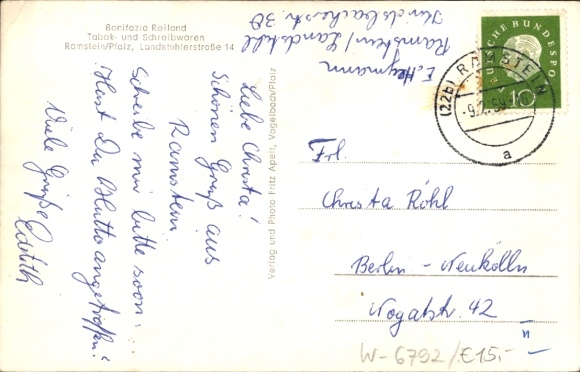 Bonifazia Reiland
Tabak- und Schreibwaren
Ramstein/Pfalz, Landstuhlerstraße 14
E. Heymann
Ramstein/Landstuhl
Kindsbacherstr. 30
DEUTSCHE BUNDESPOST
10
(22b) RAMSTEIN
a
Liebe Christa!
Schönen Gruß aus
Ramstein
Schreibe mir bitte soon...
"Hast Du Blutto angetroffen!"
Viele Grüße
Edith
Verlag und Photo Fritz Apelt, Vogelbach/Pfalz
Frl.
Christa Röhl
Berlin - Neukölln
Nogatstr. 42
W-6792/€15,-